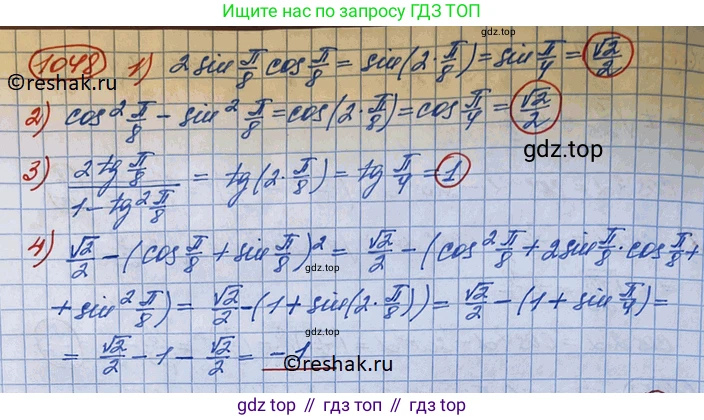 Ищите нас по запросу ГДЗ ТОП
gdz.top
1048 1) 2 sin π/8 cos π/8 = sin(2·π/8) = sin π/4 = √2/2
©reshak.ru
2) cos² π/8 − sin² π/8 = cos(2·π/8) = cos π/4 = √2/2
gdz.top
3) (2 tg π/8)/(1 − tg² π/8) = tg(2·π/8) = tg π/4 = 1
gdz.top
4) √2/2 − (cos π/8 + sin π/8)² = √2/2 − (cos² π/8 + 2 sin π/8 · cos π/8 +
gdz.top
+ sin² π/8) = √2/2 − (1 + sin(2·π/8)) = √2/2 − (1 + sin π/4) =
= √2/2 − 1 − √2/2 = −1
©reshak.ru
gdz top // гдз топ // gdz.top